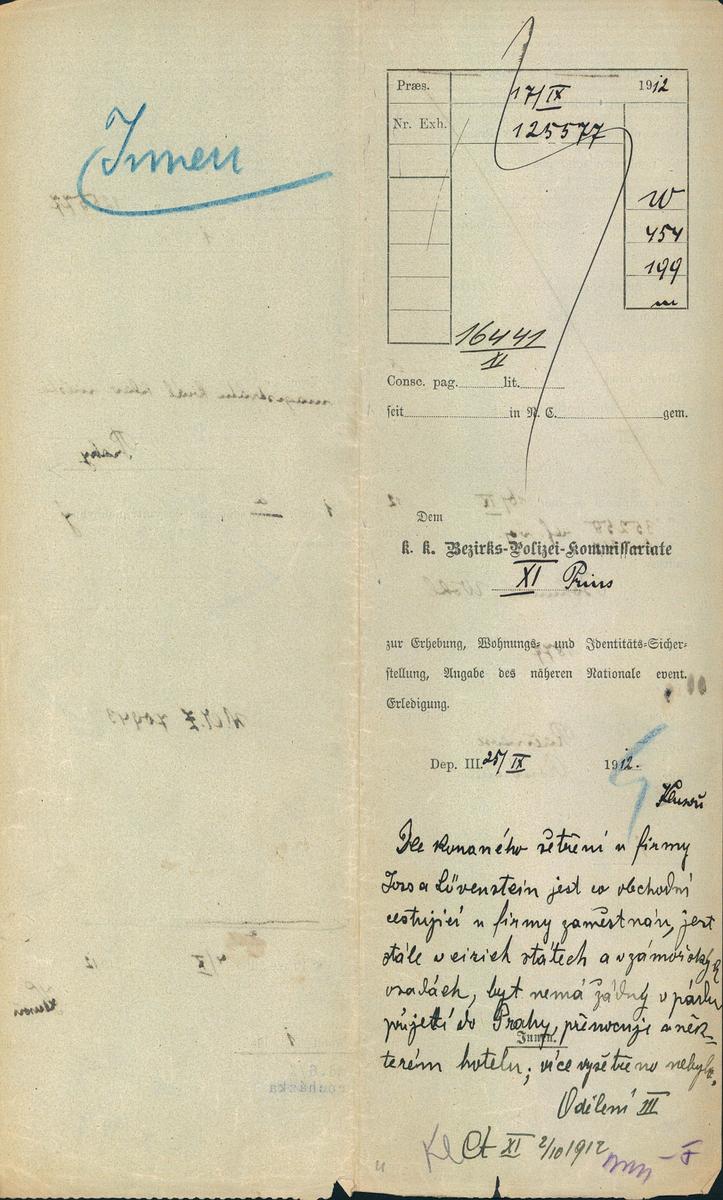 Innen
Præs. 17/IX 1912
Nr. Exh. 125577
W
454
199
m
16441
XI
Consc. pag. lit.
seit in N. C. gem.
Dem
k. k. Bezirks-Polizei-Kommissariate
XI
zur Erhebung, Wohnungs- und Identitäts-Sicher-
stellung, Angabe des näheren Nationale event.
Erledigung.
Dep. III. 25/IX 1912.
Dle konaného šetření u firmy
Löwenstein jest co obchodní
cestující u firmy zaměstnán, jest
stále v cizích státech a v zámořských
osadách, byt nemá žádný v pádu
přijetí do Prahy, přenocuje v něk-
Innen.
terém hotelu; více vyšetřeno nebylo.
Oddělení III
Ct XI 2/10 1912